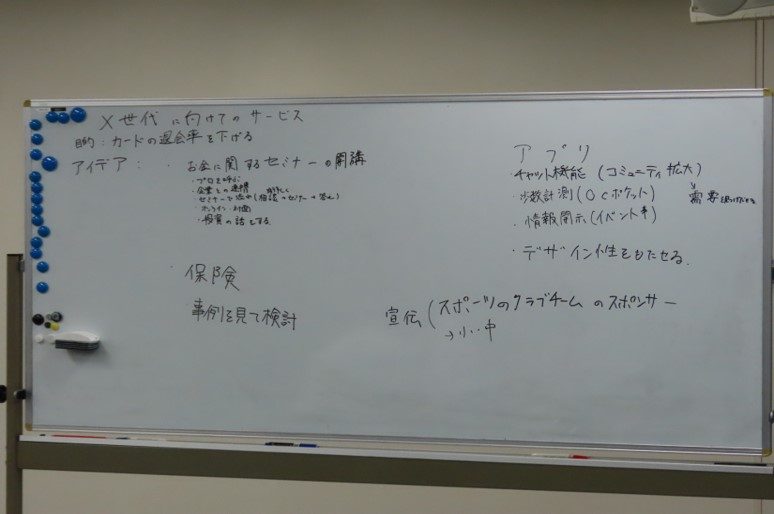 X世代に向けてのサービス
目的：カードの退会率を下げる
アイデア：・お金に関するセミナーの開講
・プロを呼ぶ
・企業との連携
・セミナーで
・オンライン・対面
・投資の話をする
・保険
・事例を見て検討
アプリ
チャット機能（コミュニティ拡大）
・歩数計測（OCポケット）
需要
・情報開示（イベント等）
・デザイン性をもたせる。
宣伝（スポーツのクラブチームのスポンサー
→小・中